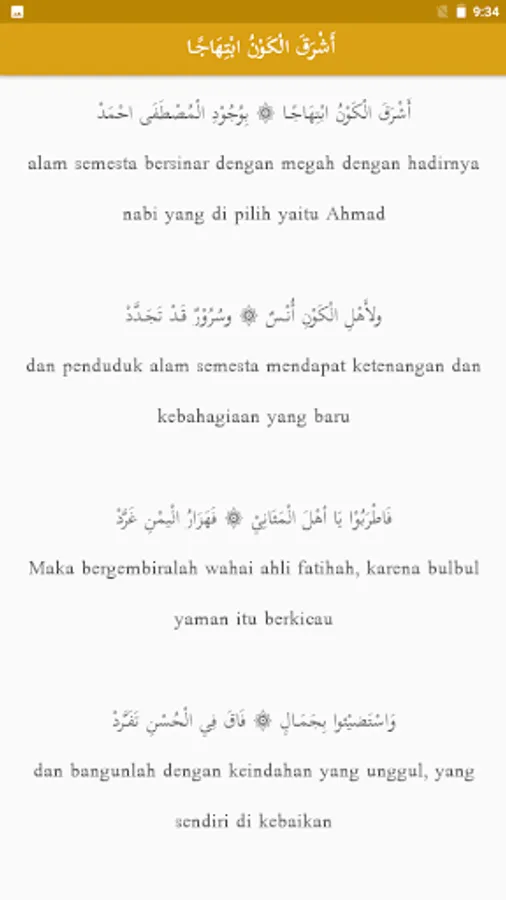 9:34
أَشْرَقَ الْكَوْنُ ابْتِهَاجًا
أَشْرَقَ الْكَوْنُ ابْتِهَاجًا ۞ بِوُجُوْدِ الْمُصْطَفَى احْمَدْ
alam semesta bersinar dengan megah dengan hadirnya
nabi yang di pilih yaitu Ahmad
ولأَهْلِ الْكَوْنِ أُنْسٌ ۞ وسُرُوْرٌ قَدْ تَجَدَّدْ
dan penduduk alam semesta mendapat ketenangan dan
kebahagiaan yang baru
فَاطْرَبُوْا يَا اَهْلَ الْمَثَانِيْ ۞ فَهَزَارُ الْيُمْنِ غَرَّدْ
Maka bergembiralah wahai ahli fatihah, karena bulbul
yaman itu berkicau
وَاسْتَضِيْئوا بِجَمَالٍ ۞ فَاقَ فِي الْحُسْنِ تَفَرَّدْ
dan bangunlah dengan keindahan yang unggul, yang
sendiri di kebaikan